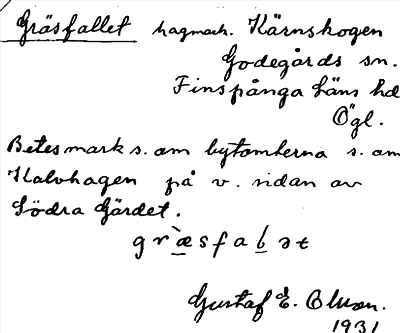 Gräsfallet hagmark. Kärnskogen
Godegårds sn.
Finspånga läns hd
Ögl.
Betesmark s. om bytomterna s. om
Kalvhagen på v. sidan av
Södra Gärdet.
Gustaf E. Olsson.
1931